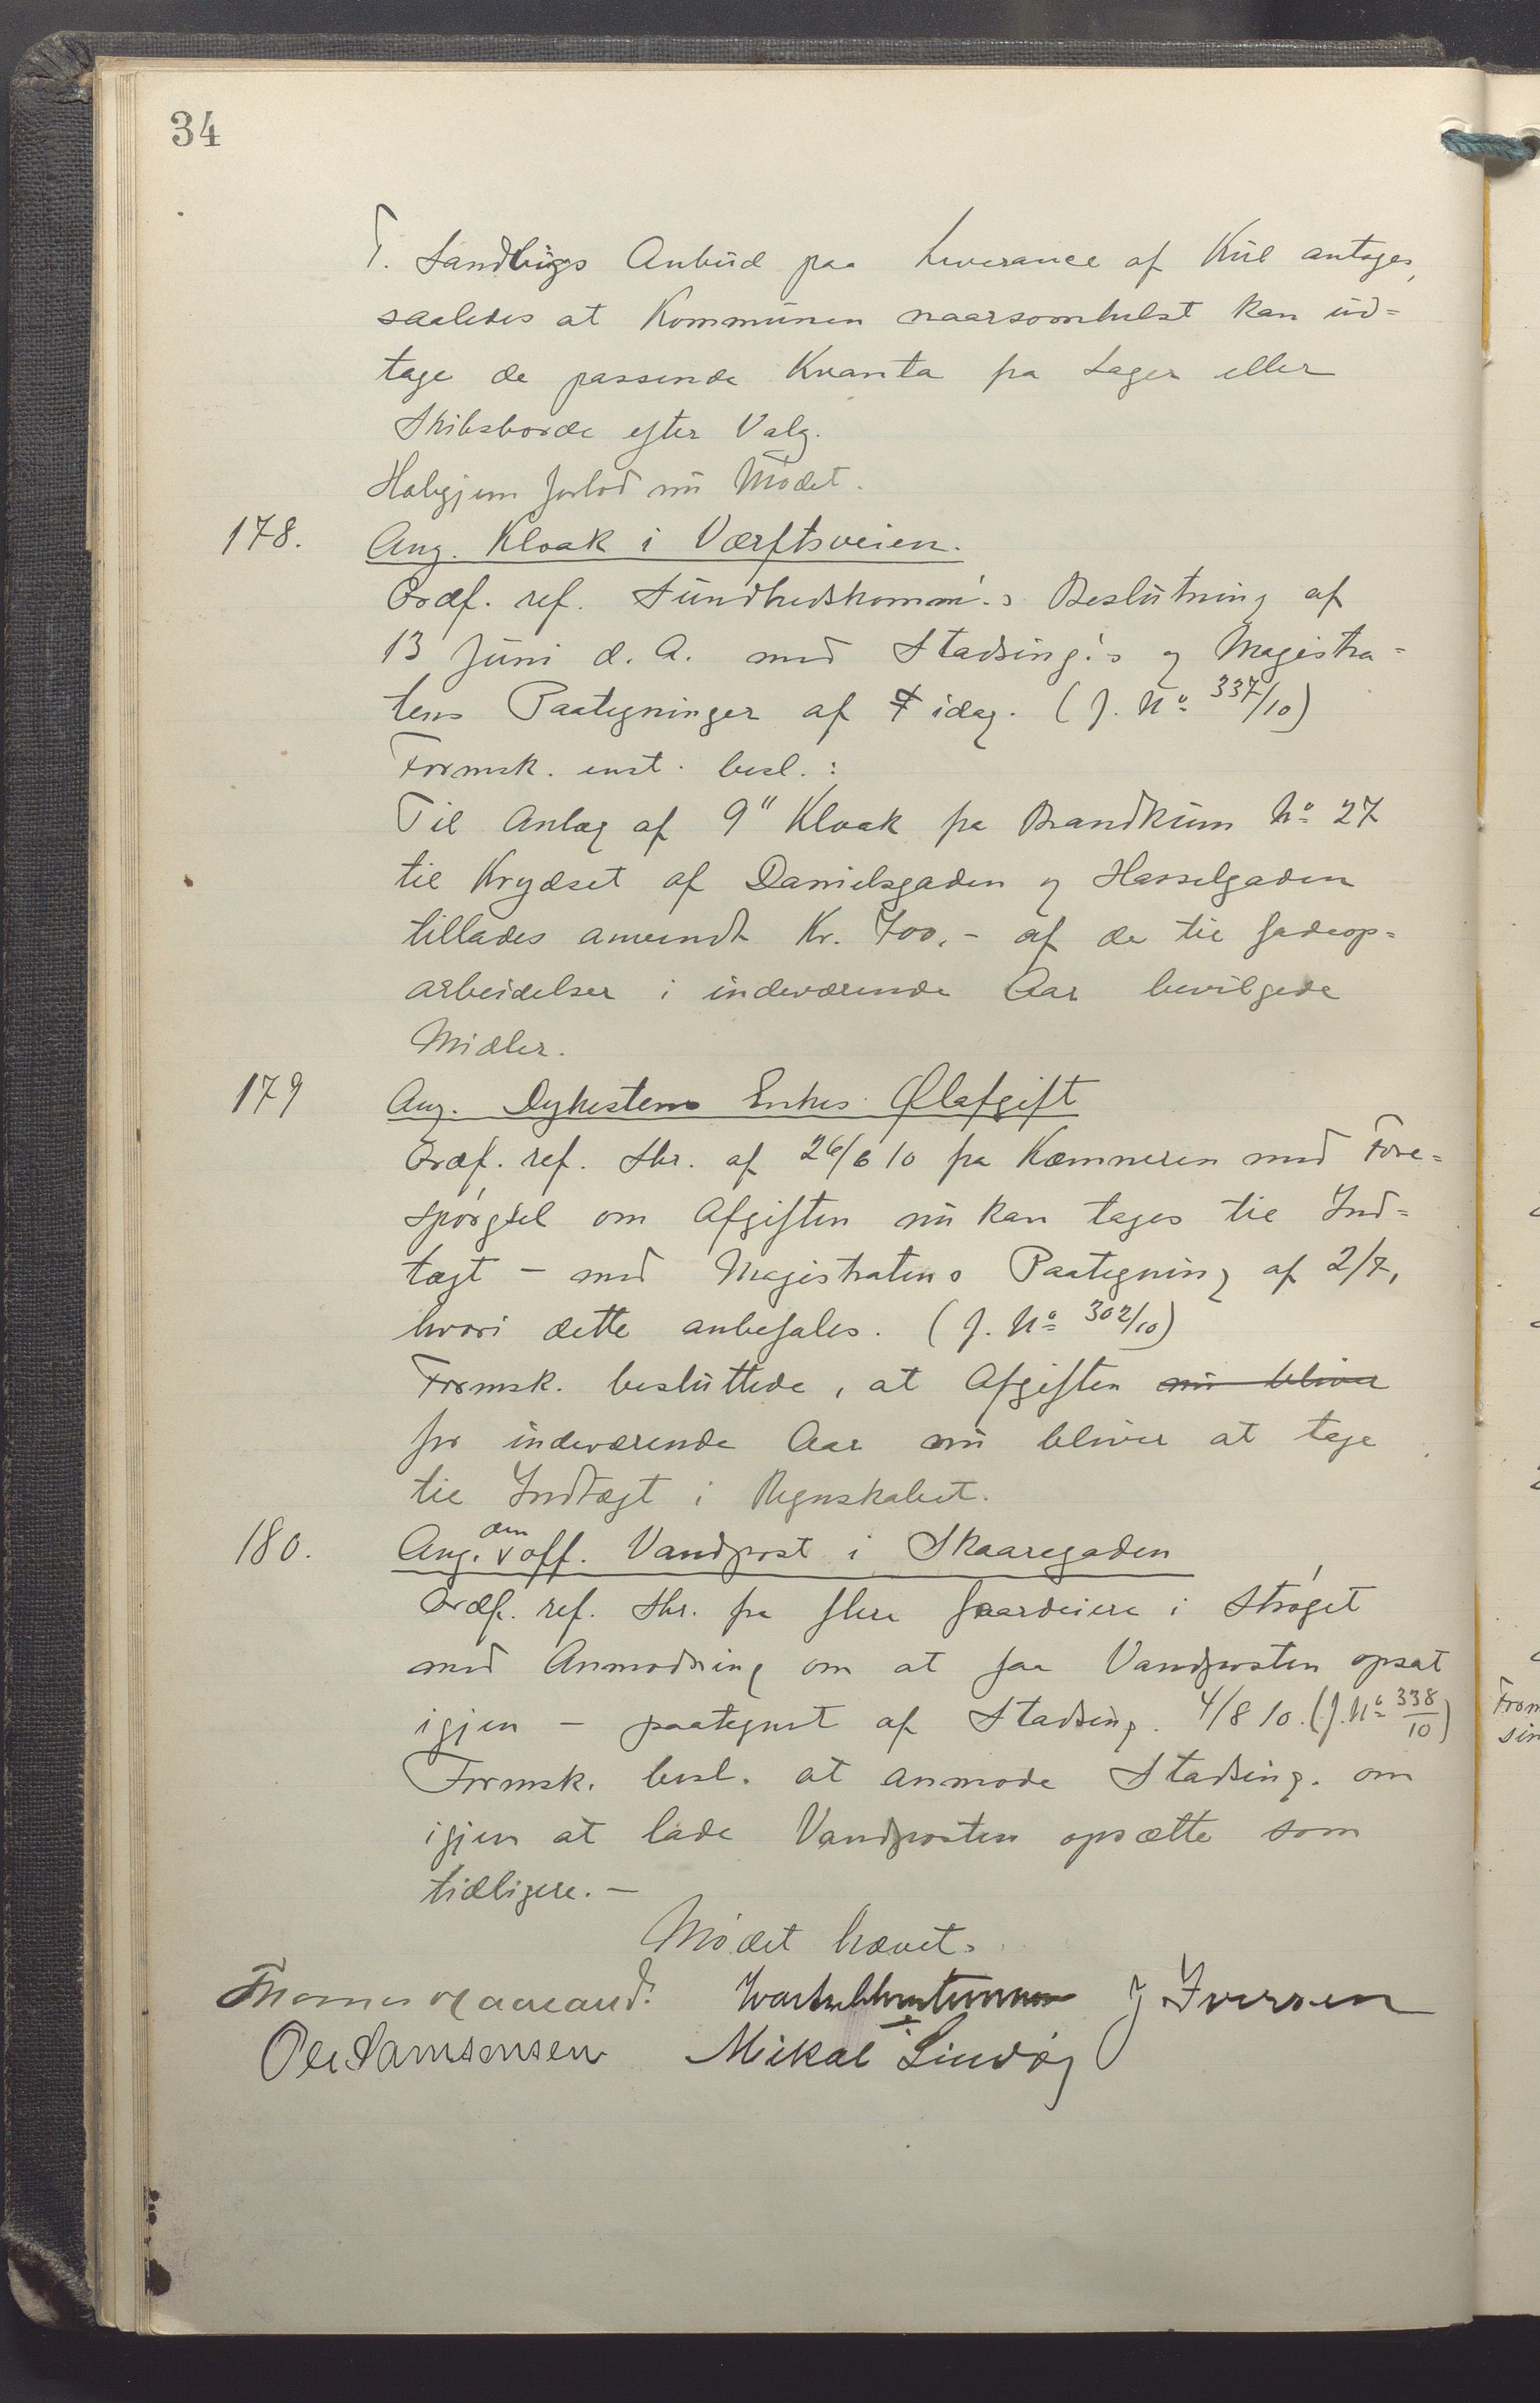 34
T. Sandbigs Anbud paa Leverance af Kul antages,
saaledes at Kommunen naarsomhelst kan ud=
tage de passende Kvanta fra Lager eller
Skibsborde efter Valg.
Habgjem forlod nu Mødet.
178. Ang. Kloak i Værftsveien.
Ordf. ref. Sundhedskomm's Beslutning af
13 Juni d. A. med Stadsing's og Magistra=
tens Paategninger af idag. (J. No 337/10)
Formsk. enst. besl.:
Til Anlæg af 9" Kloak fra Brandkum No 27
til Krydset af Danielsgaden og Hasselgaden
tillades anvendt Kr. 700,- af de til Gadeop=
arbeidelser i indeværende Aar bevilgede
Midler.
179 Ang. Dykestens Enkes Ølafgift
Ordf. ref. Skr. af 26/6 10 fra Kæmneren med Fore=
spørgsel om Afgiften nu kan tages til Ind=
tægt – med Magistratens Paategning af 2/7,
hvori dette anbefales. (J. No 302/10)
Formsk. besluttede, at Afgiften nu bliver
for indeværende Aar nu bliver at tage
til Indtægt i Regnskabet.
180. Ang. den off. Vandpost i Skaaregaden
Ordf. ref. Skr. fra flere Gaardeiere i Strøget
med Anmodning om at faa Vandposten opsat
igjen – paategnet af Stadsing. 4/8 10. (J. No 338/10)
Formsk. besl. at anmode Stadsing. om
igjen at lade Vandposten opsætte som
tidligere. –
Mødet hævet.
J. Iversen
Ole Samsonsen Mikal Lindøy
From
sin